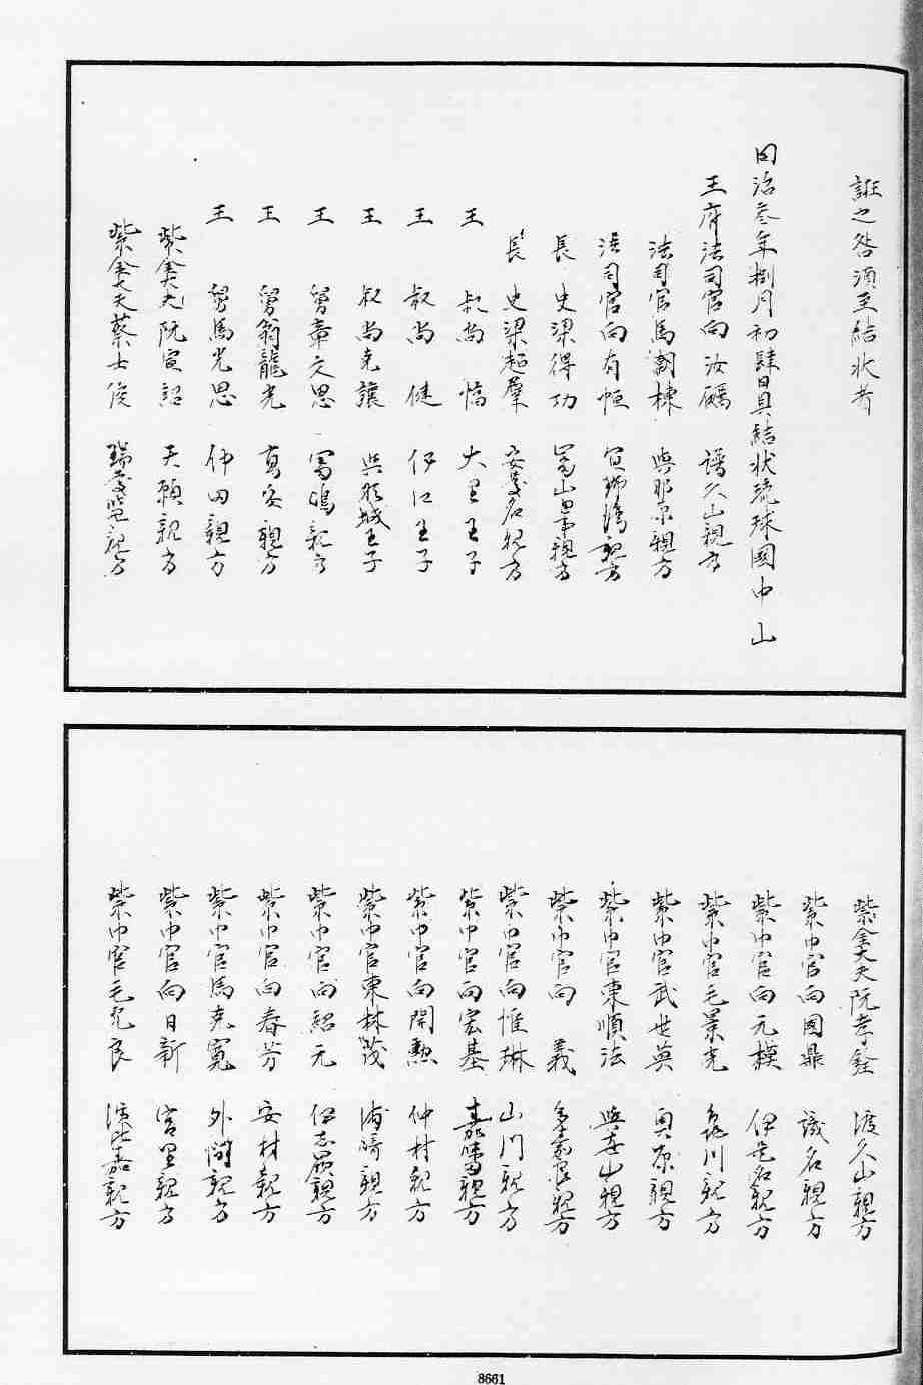 誑之咎須至結狀者
同治叄年捌月初肆日具結狀琉球國中山
王府法司官向汝礪 譜久山親方
法司官馬朝棟 與那原親方
法司官向有恒 宜野灣親方
長史梁得功
長史梁超群 安慶名親方
王叔尚惇 大里王子
王叔尚健 伊江王子
王叔尚克讓 與那城王子
王舅章文思 富嶋親方
王舅翁龍光 真安親方
王舅馬光思 伊田親方
紫金大夫阮宣詔 天願親方
紫金大夫蔡士俊 瑞慶覽親方
紫金大夫阮孝銓 渡久山親方
紫巾官向國鼎 識名親方
紫巾官向元模 伊是名親方
紫巾官毛景光 龜川親方
紫巾官武世英 奧原親方
紫巾官東順法 與世山親方
紫巾官向義 多嘉良親方
紫巾官向惟琳 山門親方
紫巾官向宏基 親方
紫巾官向開勳 仲村親方
紫巾官東林茂 浦崎親方
紫巾官向紹元 伊志嶺親方
紫巾官向春芳 安村親方
紫巾官馬克寬 外間親方
紫巾官向日新 宮里親方
紫巾官毛克良 渡比嘉親方
8661